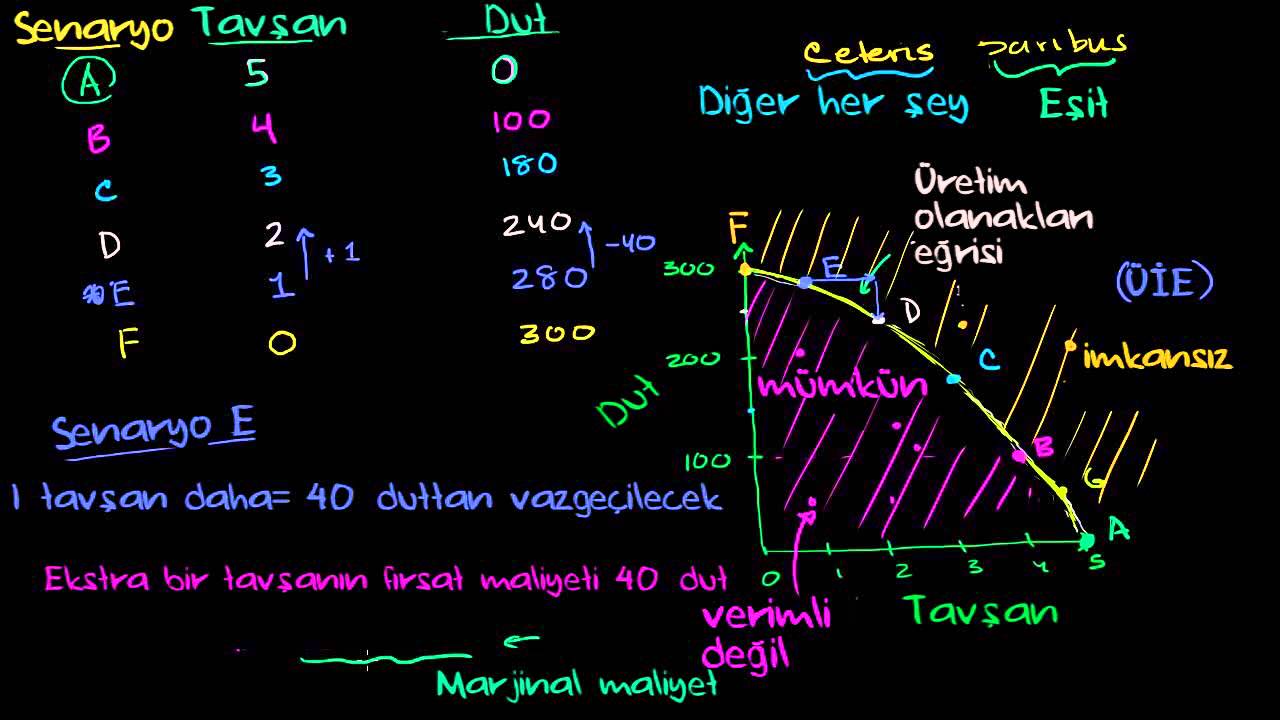 Senaryo Tavşan Dut
A 5 0
B 4 100
C 3 180
D 2 240
+1 -40
E 1 280
F 0 300
Senaryo E
1 tavşan daha= 40 duttan vazgeçilecek
Ekstra bir tavşanın fırsat maliyeti 40 dut
Marjinal maliyet
ceteris paribus
Diğer her şey Eşit
Üretim
olanakları
eğrisi
(ÜİE)
F
300
E
D
C
200
imkansız
mümkün
Dut
B
100
G
A
0 1 2 3 4 5
Tavşan
verimli
değil